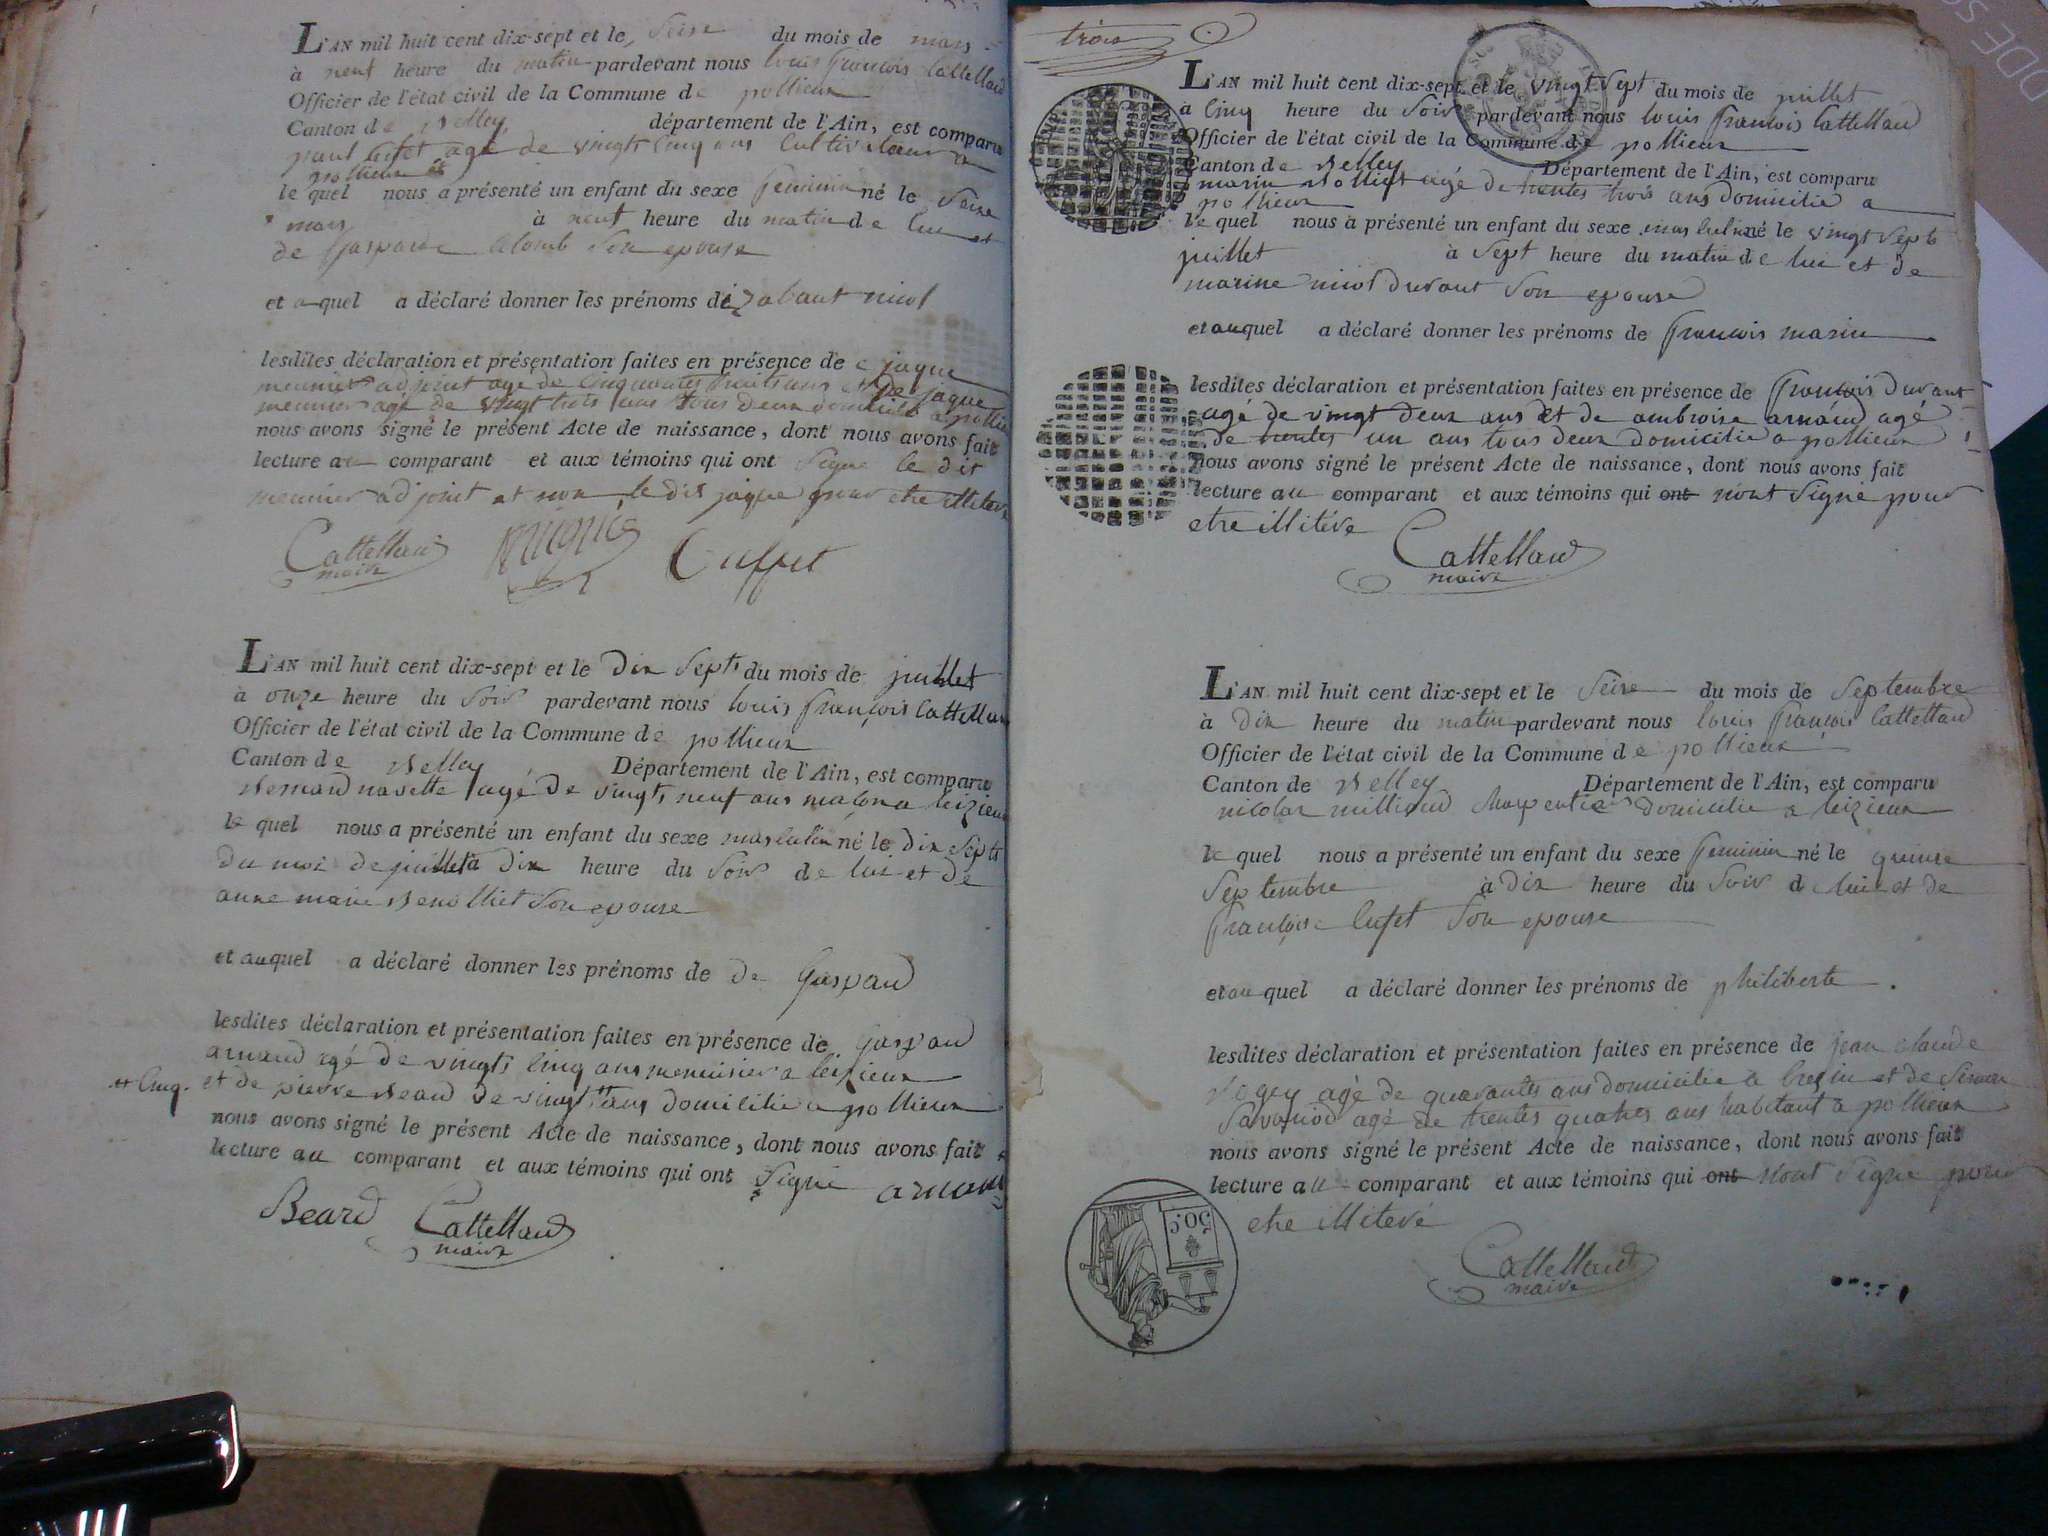 L'AN mil huit cent dix-sept et le Seise du mois de mars
à neuf heure du matin pardevant nous louis françois Cattelland
Officier de l'état civil de la Commune de pollieux
Canton de Belley département de l'Ain, est comparu
paul Cufet agé de vingt cinq ans Cultivateur a
pollieux
le quel nous a présenté un enfant du sexe feminin né le Seise
mars à neuf heure du matin de lui et
de Gasparde Son epouse
et a quel a déclaré donner les prénoms de
lesdites déclaration et présentation faites en présence de jaque
meunier adjoint agé de Cinquantes huit ans et De jaque
meunier agé de vingt trois ans tous deux domicilié a pollieu
nous avons signé le présent Acte de naissance, dont nous avons fait
lecture au comparant et aux témoins qui ont Signe le dit
meunier adjoint et non le dit jaque pour etre illiteré
Cattelland
maire
Cuffet
L'AN mil huit cent dix-sept et le Dix Septs du mois de juillet
à onze heure du Soir pardevant nous louis françois Cattelland
Officier de l'état civil de la Commune de pollieux
Canton de Belley Département de l'Ain, est comparu
Bernard navette agé de vingts neuf ans maçon a leizieu
le quel nous a présenté un enfant du sexe masculin né le dix Septs
du moi de juillet à dix heure du Soir de lui et de
anne marie Benolliet Son epouse
et auquel a déclaré donner les prénoms de de Gaspard
lesdites déclaration et présentation faites en présence de Gaspard
arnaud agé de vingts Cinq ans menuisier a leizieux
# Cinq. et de pierre Beard de vingt # ans domicilié a pollieux
nous avons signé le présent Acte de naissance, dont nous avons fait
lecture au comparant et aux témoins qui ont Signé arnaud
Beard Cattelland
maire
trois
L'AN mil huit cent dix-sept et le vingt Sept du mois de juillet
à Cinq heure du Soir pardevant nous louis françois Cattelland
Officier de l'état civil de la Commune de pollieux
Canton de Belley Département de l'Ain, est comparu
marin agé de trentes trois ans domicilié a
pollieux
le quel nous à présenté un enfant du sexe masculin né le vingt Septs
juillet à Sept heure du matin de lui et de
marine durant Son epouse
et auquel a déclaré donner les prénoms de françois marin
lesdites déclaration et présentation faites en présence de françois durant
agé de vingt deux ans et de ambroise arnaud agé
de trentes un ans tous deux domicilié a pollieux
nous avons signé le présent Acte de naissance, dont nous avons fait
lecture au comparant et aux témoins qui ont n'ont Signé pour
etre illiteré
Cattelland
maire
L'AN mil huit cent dix-sept et le Seise du mois de Septembre
à Dix heure du matin pardevant nous louis françois Cattelland
Officier de l'état civil de la Commune de pollieux
Canton de Belley Département de l'Ain, est comparu
nicolas charpentier domicilié a leizieux
le quel nous a présenté un enfant du sexe feminin né le quinse
Septembre à Dix heure du Soir de lui et de
françoise Cufet Son epouse
et au quel a déclaré donner les prénoms de philiberte
lesdites déclaration et présentation faites en présence de jean claude
agé de quarantes ans domicilié a et de Simon
agé de trentes quatres ans habitant a pollieux
nous avons signé le présent Acte de naissance, dont nous avons fait
lecture au comparant et aux témoins qui ont n'ont Signe pour
etre illiteré
Cattelland
maire
50c